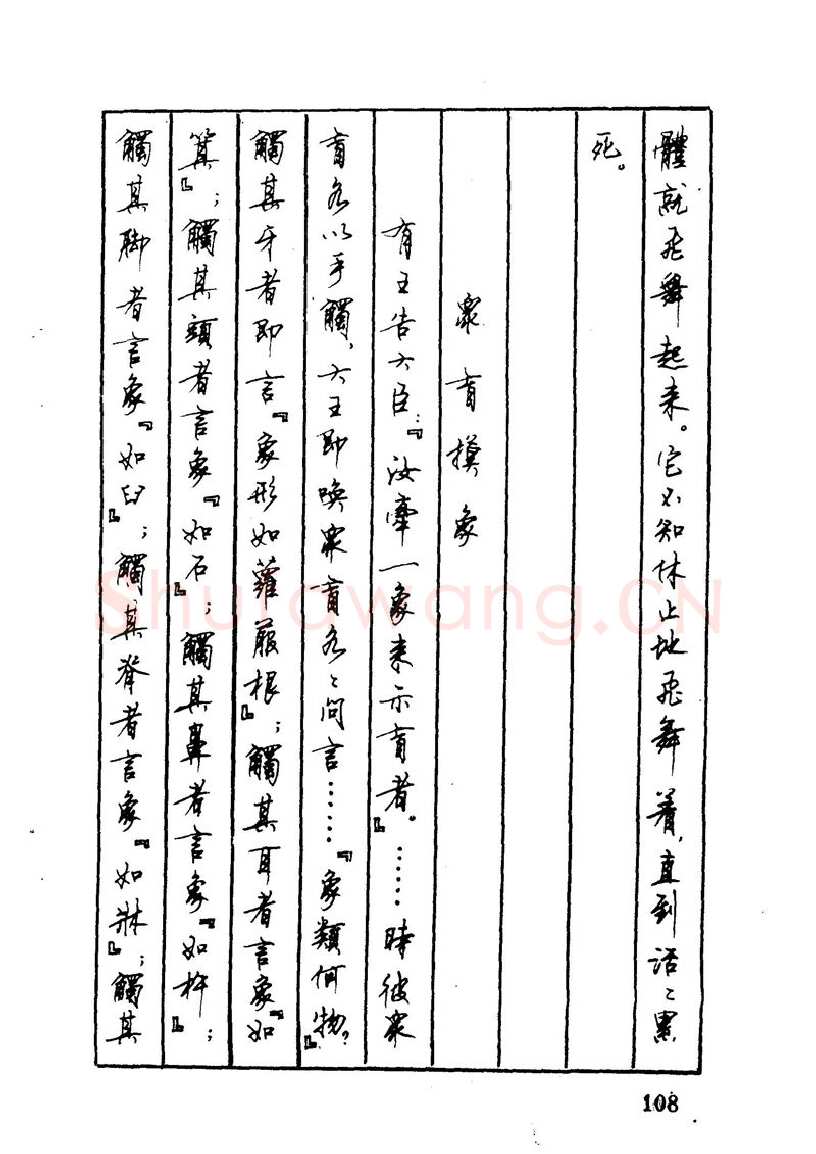 體就飛舞起来。它不知休止地飛舞着，直到活〻累
死。
衆盲摸象
有王告大臣：『汝牽一象来示盲者。』……時彼衆
盲各以手觸，大王即喚衆盲各〻问言……『象類何物？』
觸其牙者即言『象形如蘿菔根』；觸其耳者言象『如
箕』；觸其頭者言象『如石』；觸其鼻者言象『如杵』；
觸其脚者言象『如臼』；觸其脊者言象『如牀』；觸其
108
Shufawang.CN